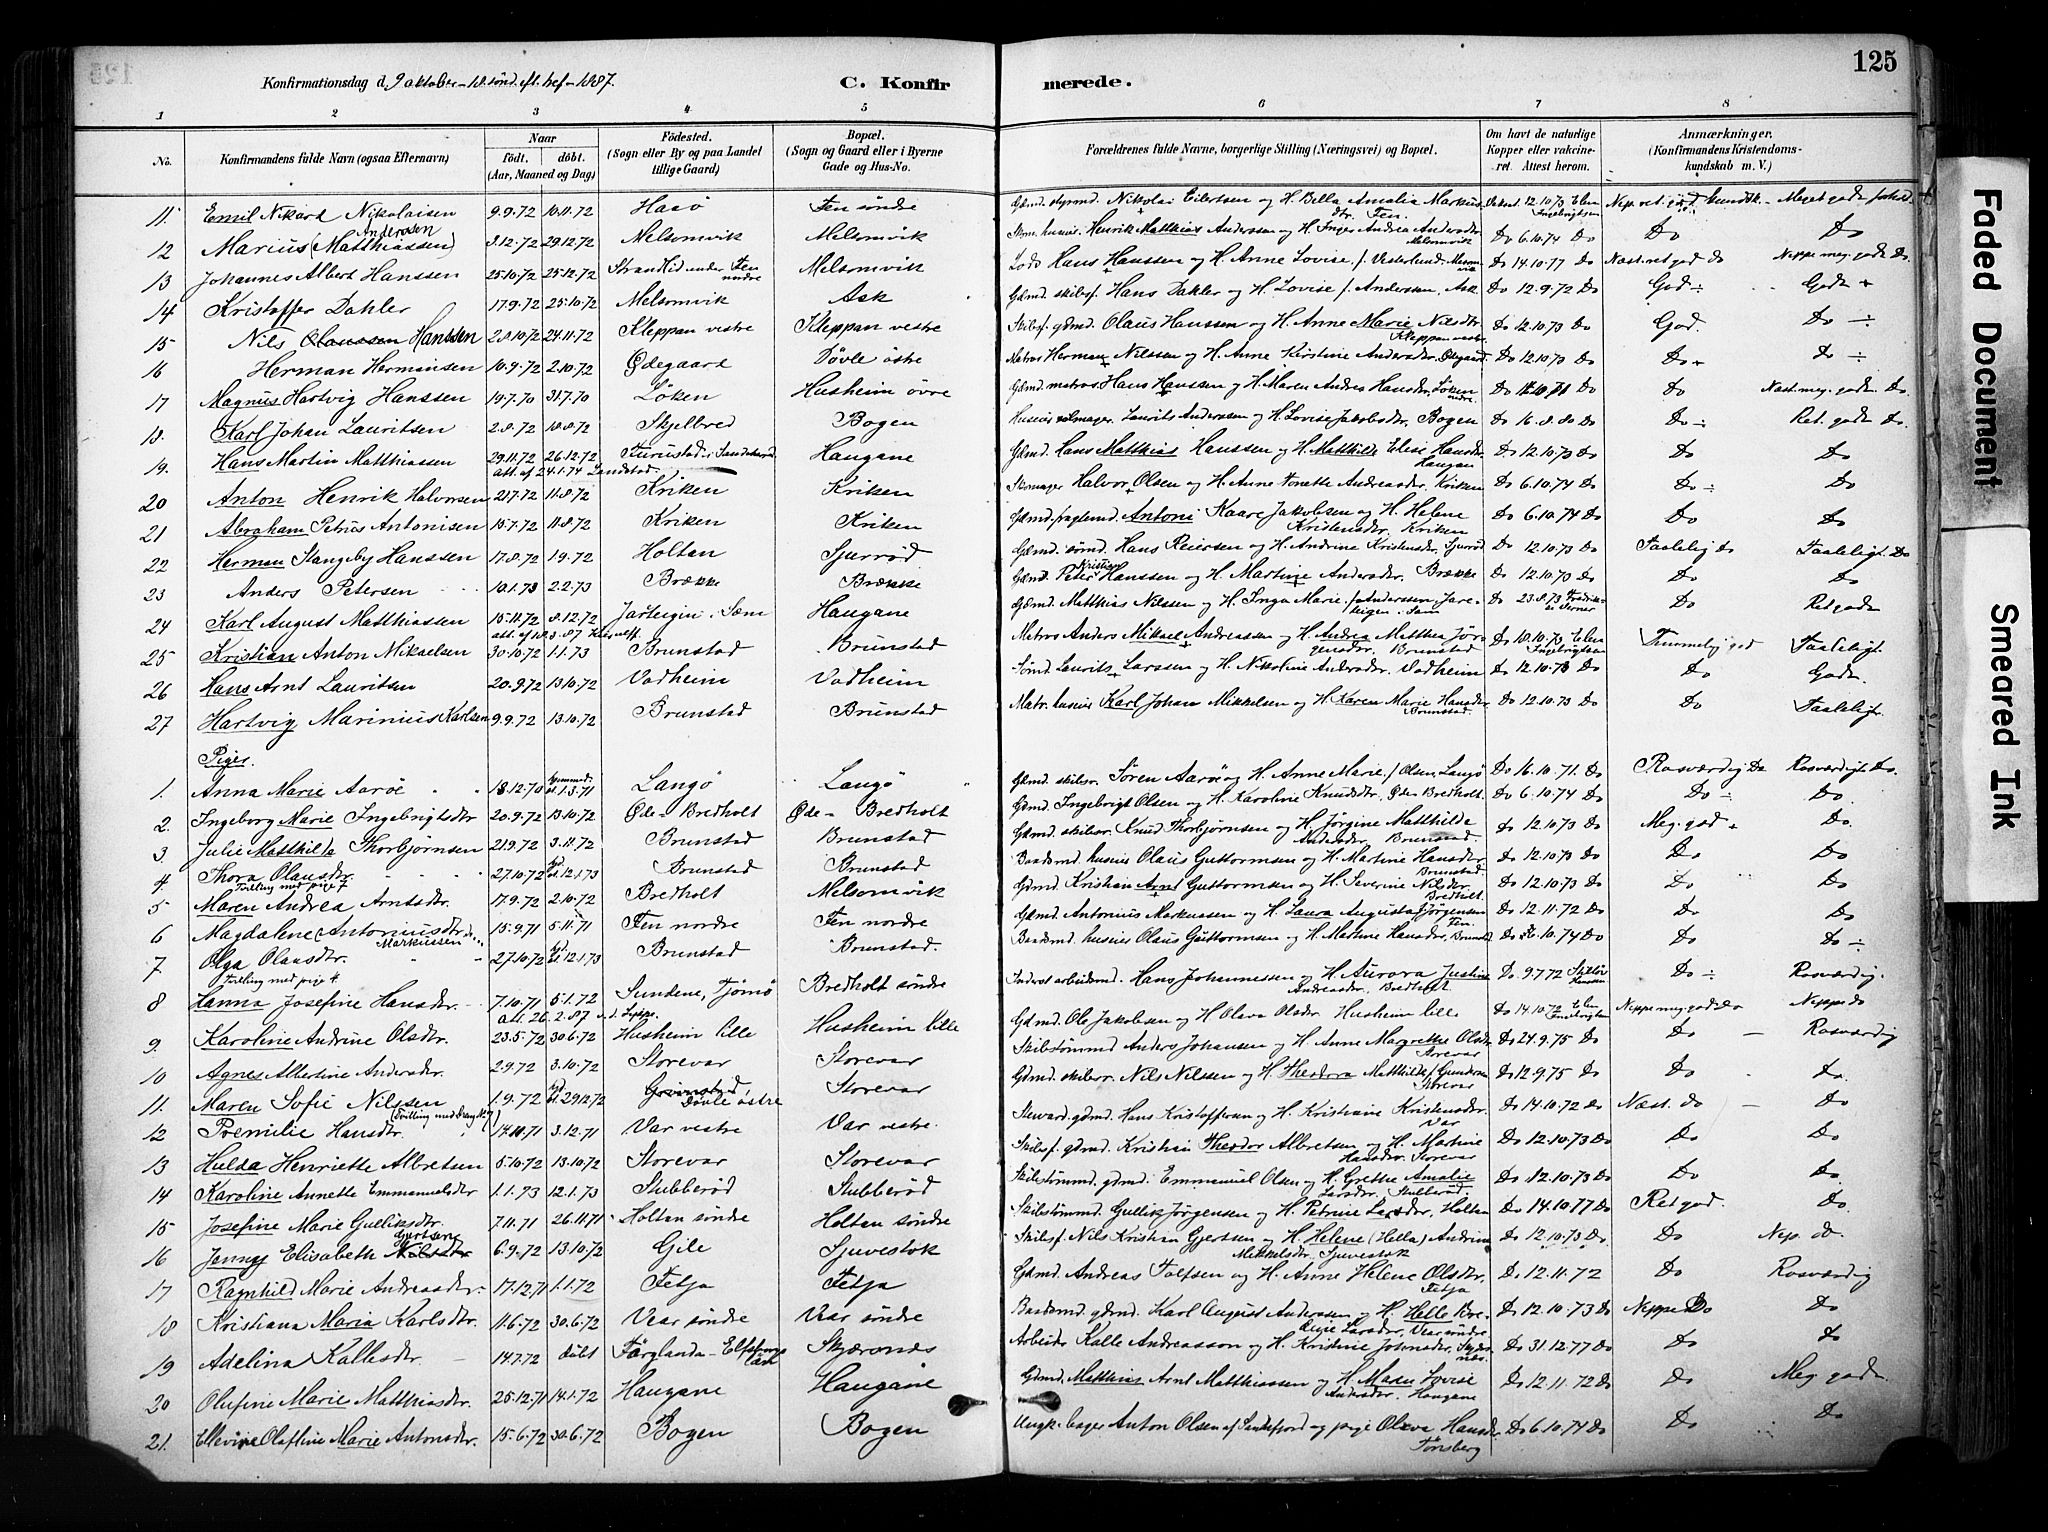 125
Konfirmationsdag d. 9 oktober - 18 sønd. eft. tref - 1887.
C. Konfirmerede.
1 2 3 4 5 6 7 8
No.
Konfirmandens fulde Navn (ogsaa Efternavn)
Naar født. døbt. (Aar, Maaned og Dag)
Fødested. (Sogn eller By og paa Landet tillige Gaard)
Bopæl. (Sogn og Gaard eller i Byerne Gade og Hus-No.
Forældrenes fulde Navne, borgerlige Stilling (Næringsvei) og Bopæl.
Om havt de naturlige Kopper eller vakcineret. Attest herom.
Anmærkninger. (Konfirmandens Kristendomskundskab m. V.)
11. Emil Nikard Nikolaisen 9.9.72 10.11.72 Hasø Fen søndre
12 Marius (Matthiassen) Anderssen 3.12.72 29.12.72 Melsomvik Melsomvik Henrik Matthias Anderssen og H. Inger Andrea Andersdtr Melsomvik Do 6.10.74 Do Do Do
13 Johannes Albert Hanssen 25.10.72 25.12.72 Strandlid under Fen søndre Melsomvik Hans Hanssen og H. Anne Lovise f. Vesterlund Do 14.10.77 Do
14 Kristoffer Dahler 17.9.72 25.10.72 Melsomvik Ask Gdmd. skibsf. Hans Dahler og H. Lovise f. Anderssen, Ask Do 12.9.72 Do God ÷ Godt +
15 Nils Olaussen Hanssen 2.8.10.72 24.11.72 Kleppan vestre Kleppan vestre Skibsf. gdmd. Olaus Hanssen og H. Anne Marie Nilsdtr Kleppan vestre Do 12.10.73 Do God. Do ÷
16 Herman Hermansen 10.9.72 2.10.72 Ødegaard Døvle østre Matros Herman Nilssen og H. Anne Kirstine Andersdtr. Ødegaard Do 12.10.70 Do Do + Do ÷
17 Magnus Hartvig Hanssen 19.7.70 31.7.70 Løken Husheim øvre Gdmd. matros. Hans Hanssen og H. Maren Andrea Hansdtr. Løken Do Do
18. Karl Johan Lauritsen 2.8.72 18.8.72 Skjelbred Bogen Laurits Anderssen og H. Lovise Jakobsdtr, Bogen Do 16.8.80 Do Do ÷ Ret godt Do.
19. Hans Martin Matthiassen 29.11.72 26.12.72 Furustad, Sandeherred Haugane Gdmd. Hans Matthias Hanssen og H. Mathilde Elise Hansdtr Haugan Do 12.10.70 Do Do Do
att. af 24.1.74 Landstad.
20 Anton Henrik Halvorsen 21.7.72 11.8.72 Kriken Kriken Halvor Olsen og H. Anne Nonette Andreasdtr, Kriken Do 6.10.74 Do Do ÷ Do
21 Abraham Petrus Antonisen 15.7.72 11.8.72 Kriken Kriken Antoni Kaare Jakobsen og H. Helene Kristensdtr, Kriken Do 6.10.74 Do Do Do
22 Herman Stangeby Hanssen 17.8.72 1.9.72 Holtan Sjurrød Gdmd. sømd. Hans Reiersen og H. Andrine Kristensdtr, Sjurrød Do 12.10.73 Do Taalelig Do Taaleligt Do
23 Anders Petersen 10.1.73 2.2.73 Brække Brække Gdmd. Peter Kristian Hanssen og H. Martine Andersdtr. Brække Do 12.10.73 Do Do Do
24 Karl August Matthiassen 15.11.72 8.12.72 Jarteigin, Sæm Haugane Gdmd. Matthias Nilssen og H. Inga Marie f. Anderssen Do 23.8.73 Do Ret godt
25 Kristian Anton Mikaelsen 30.10.72 1.1.73 Brunstad Brunstad Matros Anders Mikael Andreassen og H. Andrea Matthea Jørgensdtr, Brunstad Do 18.10.73 Elen Ingebrigtsen Temmelig god Taaleligt
26 Hans Arnt Lauritsen 20.9.72 13.10.72 Vadheim Vadheim Sømd Laurits Larssen og H. Nikoline Andersdtr. Vadheim Do 12.10.73 Do Do Godt
27 Hartvig Marinius Karlsen 9.9.72 13.10.72 Brunstad Brunstad Matr. huseier Karl Johan Mikkelsen og H. Karen Marie Hansdtr Brunstad Do 12.10.73 Do Do Taaleligt
Piger.
1. Anna Marie Aarøe 18.12.70 1.3.71 Langø Langø Gdmd. skibsr. Søren Aarøe og H. Anne Marie f. Olsen, Langø Do 16.10.71 Do Rosværdig Do Rosværdigt Do.
2. Ingeborg Marie Ingebrigtsdtr 20.9.72 13.10.72 Øde-Bredholt Øde-Bredholt Gdmd. Ingebrigt Olsen og H. Karoline Knudsdtr, Øde Bredholt. Do 6.10.74 Do Do ÷ Do
3. Julie Matthilda Thorbjørnsen 21.9.72 3.11.72 Brunstad Brunstad Gdmd. skibsr. Knud Thorbjørnsen og H. Jørgine Matthilda Andersdtr Brunstad Do 12.10.73 Do Meg. god + Do.
4. Thora Olausdtr. 27.10.72 12.1.73 Brunstad Brunstad Baadsmd. huseier Olaus Guttormsen og H. Martine Hansdtr Brunstad Do 12.10.73 Do Do Do
Tvilling med pige 7
5 Maren Andrea Arntsdtr. 17.9.72 2.10.72 Bredholt Melsomvik Gdmd. Kristian Arnt Guttormsen og H. Severine Nilsdtr. Bredholt. Do 12.10.73 Do Do Do
6 Magdalene (Antoniusdtr.) Markussen 15.9.71 5.11.71 Fen nordre Fen nordre Gdmd. Antonius Markussen og H. Laura Augusta f. Jørgensen Fen. Do 12.11.72 Do Do Do
7 Olga Olausdtr. 27.10.72 12.1.73 Brunstad Brunstad. Baadsmd. huseier Olaus Guttormsen og H. Martine Hansdtr, Brunstad Do 6.10.74 Do Do Do ÷
Tvilling med pige 4
8 Hanna Josefine Hansdtr. 7.10.71 5.1.72 Sundene, Tjømø Bredholt søndre Inderst arbeidsmd. Hans Johannessen og H. Aurora Justine Andreasdtr, Bredholt Do 9.7.72 Do ÷ Rosværdig.
att. 26.2.87
9. Karoline Andrine Olsdtr. 23.5.72 30.6.72 Husheim lille Husheim lille Gdmd. Ole Jakobsen og H Olava Olsdtr Husheim lille Do 14.10.72 Elen Ingebrigtsen Neppe meg. god Do Neppe do
10 Agnes Albertine Andersdtr. 2.9.72 3.10.72 Storevar Storevar Skibstømmd Anders Johansen og H. Anne Margrethe Olsdtr Storevar Do 24.9.75 Do Do Rosværdig
11. Maren Sofie Nilssen 1.9.72 29.12.72 Grimstad, Døvle østre Storevar Gdmd. skibsr. Nils Nilssen og H. Theodora Matthilde f. Gundersen Storevar Do 12.9.75 Do Do Do.
12 Pemilie Hansdtr. 14.10.71 3.12.71 Var vestre Var vestre Steward. gdmd. Hans Kristoffersen og H. Kristiane Kristensdtr. Var Do 14.10.72 Do Næst. do Do
13 Hulda Henriette Albretsen 5.10.72 13.10.72 Storevar Storevar Skibsf. gdmd. Kristian Theodor Albretsen og H. Martine Hansdtr. Storevar Do 12.10.73 Do Do Do
14 Karoline Annette Emmanuelsdtr 1.1.73 12.1.73 Stubberød Stubberød Skibstømmd. gdmd. Emmanuel Olsen og H. Grethe Amalie Larsdtr. Stubberød. Do 12.10.73 Do Do Do.
15 Josefine Marie Gulliksdtr. 7.11.71 26.11.71 Holtan søndre Holtan søndre Skibstømmd. Gullik Jørgensen og H. Petrine Larsdtr, Holtan Do 14.10.77 Do Ret god. Do.
16 Jenny Elisabeth Nilsdtr Gjertsen 6.9.72 13.10.72 Gile Sjuvestok Skibsf. Nils Kristian Gjertsen og H. Helene (Hella) Andrine Mikkelsdtr, Sjuvestok Do 12.10.73 Do Do Nep. do.
17 Ragnhild Marie Andreasdtr. 17.12.71 1.1.72 Fetja Fetja Gdmd. Andreas Tolfsen og H. Anne Helene Olsdtr, Fetja Do 12.11.72 Do Rosværdig
18 Kristiana Maria Karlsdtr. 11.6.72 30.6.72 Vear søndre Vear søndre Baadsmd. gdmd. Karl August Anderssen og H. Helle Larsdtr, Vear søndre Do 12.10.73 Do Neppe Do Do
19 Adelina Kallesdtr. 14.7.72 døbt Färglanda - Elfsborgs Län Skjærsnæs Arbeider Kalle Andreasson og H. Kristine Johnsdtr, Skjærsnæs. Do 31.12.77 Do Do Do
20 Olufine Marie Matthiasdtr. 25.12.71 14.1.72 Haugane Haugane Gdmd. Matthias Arnt Matthiassen og H. Maren Lovise Andersdtr. Haugane Do 12.11.72 Do Do Meg. godt
21. Ellevine Olafline Marie Antonsdtr. 15.6.72 30.6.72 Bogen Bogen Ungk. bager Anton Olsen af Sandefjord og pige Olava Hansdtr, Tønsberg Do 6.10.74 Do Do Do
Faded Document
Smeared Ink